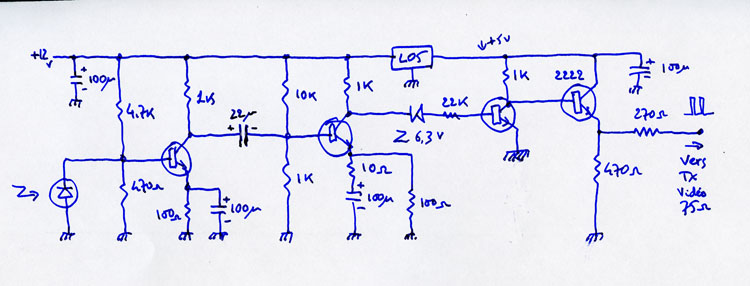 +12v
+
100µ
-
4.7K
470Ω
1K5
22µ
+ -
100Ω
+
100µ
-
10K
1K
1K
10Ω
+
100µ
-
100Ω
L05
Z 6,3V
22K
+5v
1K
2222
+
100µ
-
270Ω
470Ω
Vers
Tx
Vidéo
75Ω